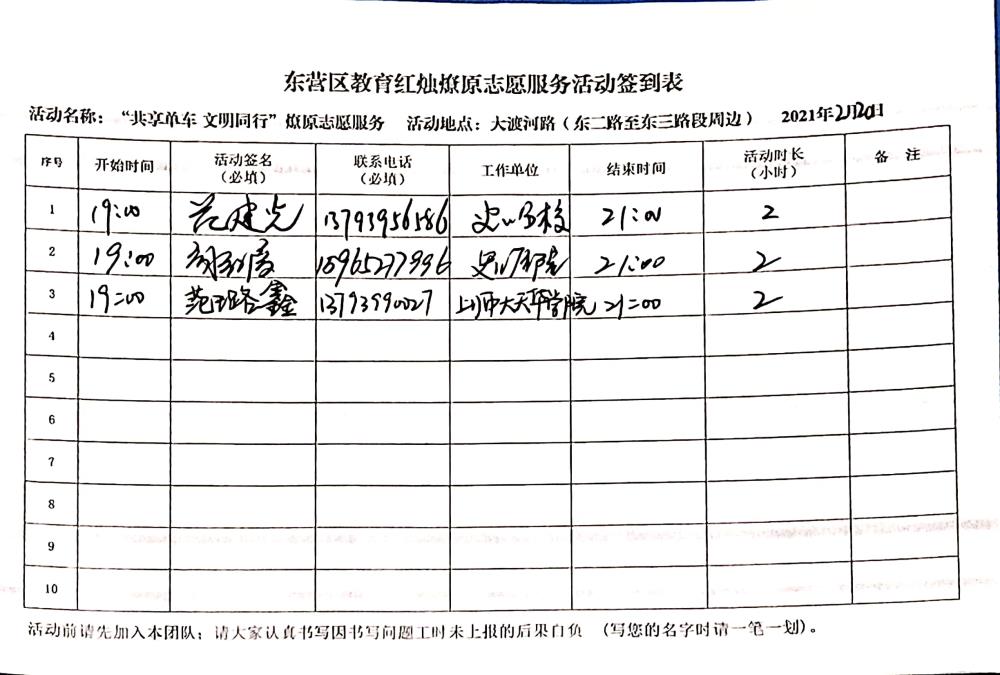 东营区教育红烛燎原志愿服务活动签到表
活动名称：“共享单车 文明同行”燎原志愿服务 活动地点：大渡河路（东二路至东三路段周边） 2021年2月20日
序号 开始时间 活动签名（必填） 联系电话（必填） 工作单位 结束时间 活动时长（小时） 备 注
1 19:00 范建光 13793956586 21:00 2
2 19:00 15965277996 21:00 2
3 19:00 范璐鑫 13793990027 上师大天华学院 21:00 2
4
5
6
7
8
9
10
活动前请先加入本团队；请大家认真书写因书写问题工时未上报的后果自负 （写您的名字时请一笔一划）。